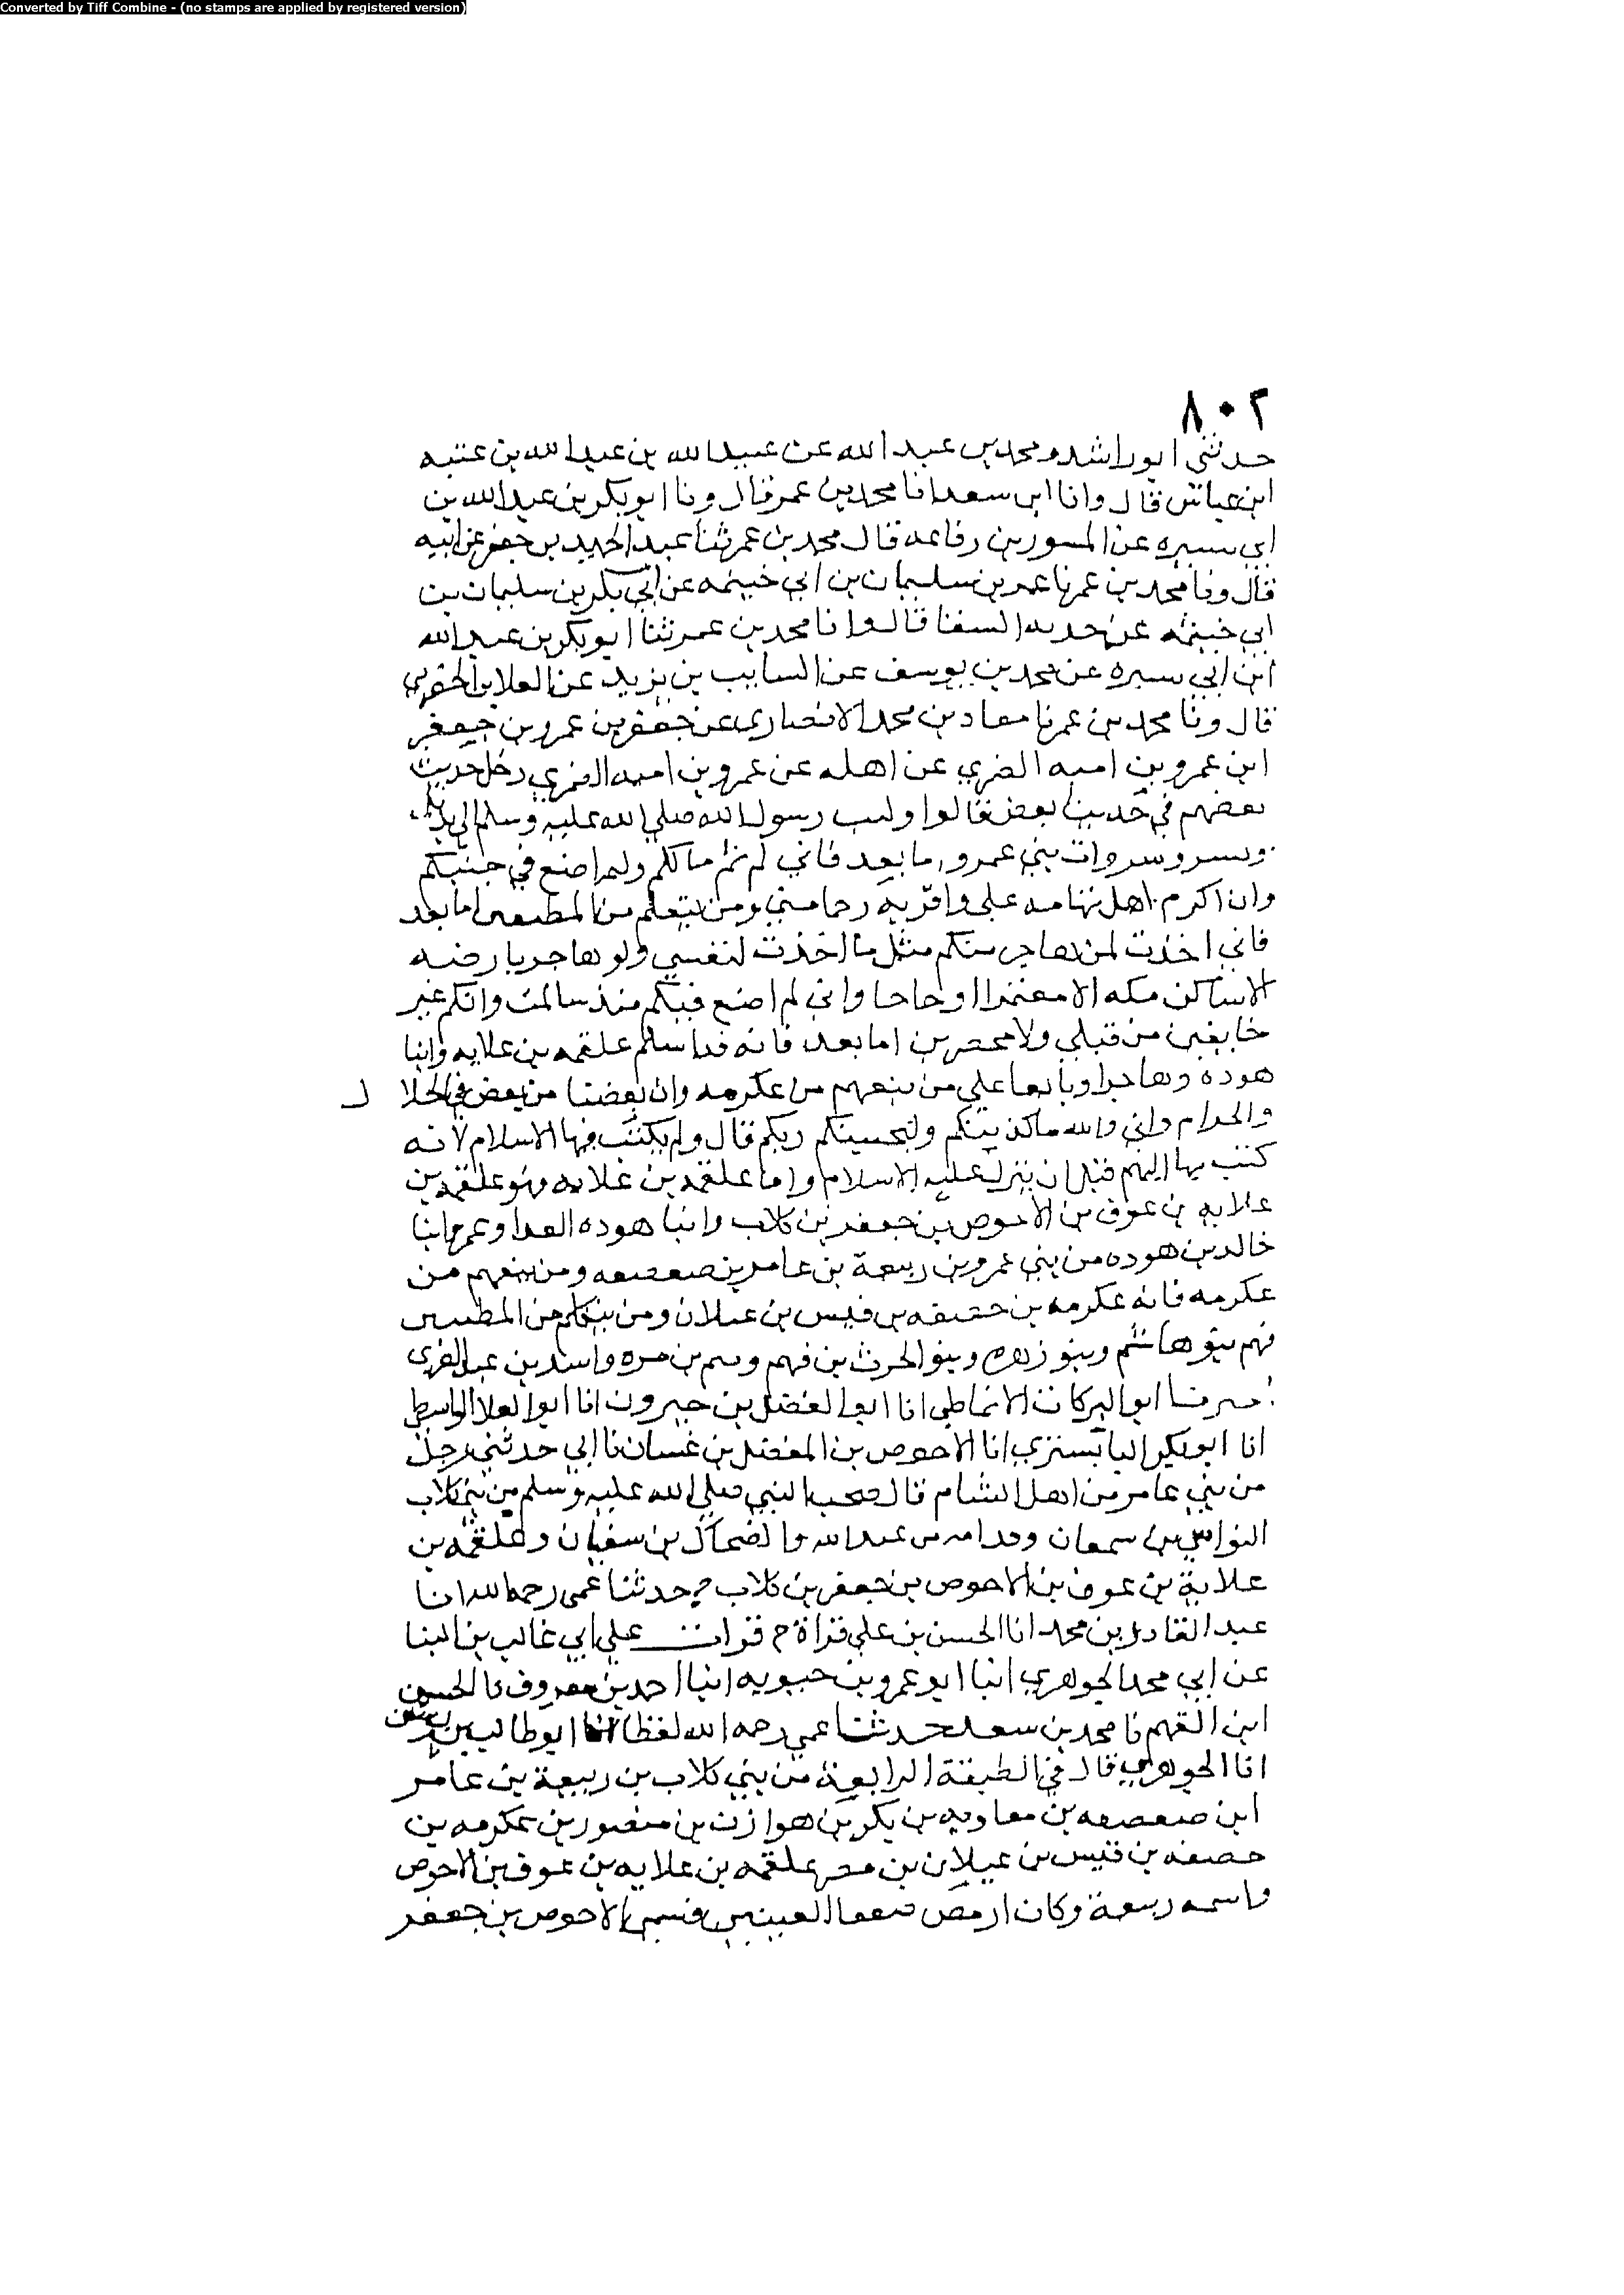 Converted by Tiff Combine - (no stamps are applied by registered version)
٨٠٢
حدثني ابوراشد ومحمد بن عبد الله عن عبيد الله بن عبد الله بن عتبه
ابن عباس قال وانا ابن سعد انا محمد بن عمر قال ونا ابو بكر بن عبد الله بن
ابي سبره عن المسور بن رفاعه قال محمد بن عمر ثنا عبد الحميد بن جعفر عن ابيه
قال ونا محمد بن عمر نا عمر بن سليمان بن ابي خيثمه عن ابي بكر بن سليمان بن
ابي خيثمه عن جدته الشفا قالوا نا محمد بن عمر ثنا ابو بكر بن عبد الله
ابن ابي سبره عن محمد بن يوسف عن السايب بن يزيد عن العلا بن الحضرمي
قال ونا محمد بن عمر نا معاد بن محمد الانصاري عن جعفر بن عمرو بن جعفر
ابن عمرو بن اميه الضمري عن اهله عن عمرو بن اميه الضمري دخل حديث
بعضهم في حديث بعض قالوا وكتب رسول الله صلي الله عليه وسلم الي بديل
وبسر وسروات بني عمرو اما بعد فاني لم اثم مالكم ولم اضع في جنبكم
وان اكرم اهل تهامه علي واقربه رحما مني ومن تبعكم من المطيبين اما بعد
فاني اخذت لمن هاجر منكم مثل ما اخذت لنفسي ولو هاجر بارضه
الا ساكن مكه الا معتمرا او حاجا واني لم اضع فيكم منذ سالمت وانكم غير
خايفين من قبلي ولا محصرين اما بعد فانه قد اسلم علقمه بن علاثه وابنا
هوده وهاجرا وبايعا علي من تبعهم من عكرمه وان بعضنا من بعض في الحلا ل
والحرام واني والله ما كذبتكم وليحبنكم ربكم قال ولم يكتب فيها الاسلام لانه
كتب بها اليهم قبل ان ينزل عليه الاسلام واما علقمه بن علاثه فهو علقمه بن
علاثه بن عوف بن الاحوص بن جعفر بن كلاب وابنا هوده العدا وعمرو ابنا
خالد بن هوده من بني عمرو بن ربيعة بن عامر بن صعصعه ومن تبعهم من
عكرمه فانه عكرمه بن خصفه بن قيس بن عيلان ومن تبعكم من المطيبين
فهم بنو هاشم وبنو زهره وبنو الحرث بن فهم وتيم بن مره واسد بن عبد العزي
اخبرنا ابو البركات الانماطي انا ابو الفضل بن خيرون انا ابو العلا الواسطي
انا ابو بكر البابسيري انا الاحوص بن المفضل بن غسان نا ابي حدثني رجل
من بني عامر من اهل الشام قال صحب النبي صلي الله عليه وسلم من بني كلاب
النواس بن سمعان وقدامه بن عبد الله والضحاك بن سفيان وعلقمه بن
علاثة بن عوف بن الاحوص بن جعفر بن كلاب ح حدثنا عمي رحمه الله انا
عبد القادر بن محمد انا الحسن بن علي قراة ح قرات علي ابي غالب بن البنا
عن ابي محمد الجوهري انبا ابو عمرو بن حيويه انبا احمد بن معروف نا الحسين
ابن الفهم نا محمد بن سعد حدثنا عمي رحمه الله لفظا انا ابو طالب بن يوسف
انا الجوهري قال في الطبقة الرابعة من بني كلاب بن ربيعة بن عامر
ابن صعصعه بن معاويه بن بكر بن هوازن بن منصور بن عكرمه بن
خصفه بن قيس بن عيلان بن مضر علقمه بن علاثه بن عوف بن الاحوص
واسمه ربيعة وكان ارمص العينين فسمي الاحوص بن جعفر